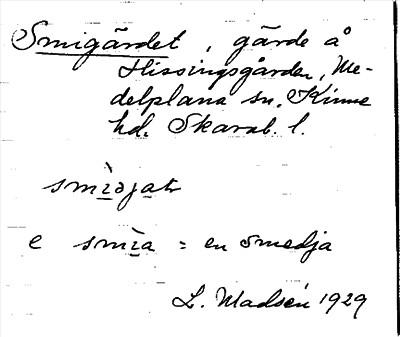 Smigärdet, gärde å
Hissingsgården, Me-
delplana sn. Kinne
hd. Skarab. l.
smìɜjat
e smìa = en smedja
L. Madsén 1929